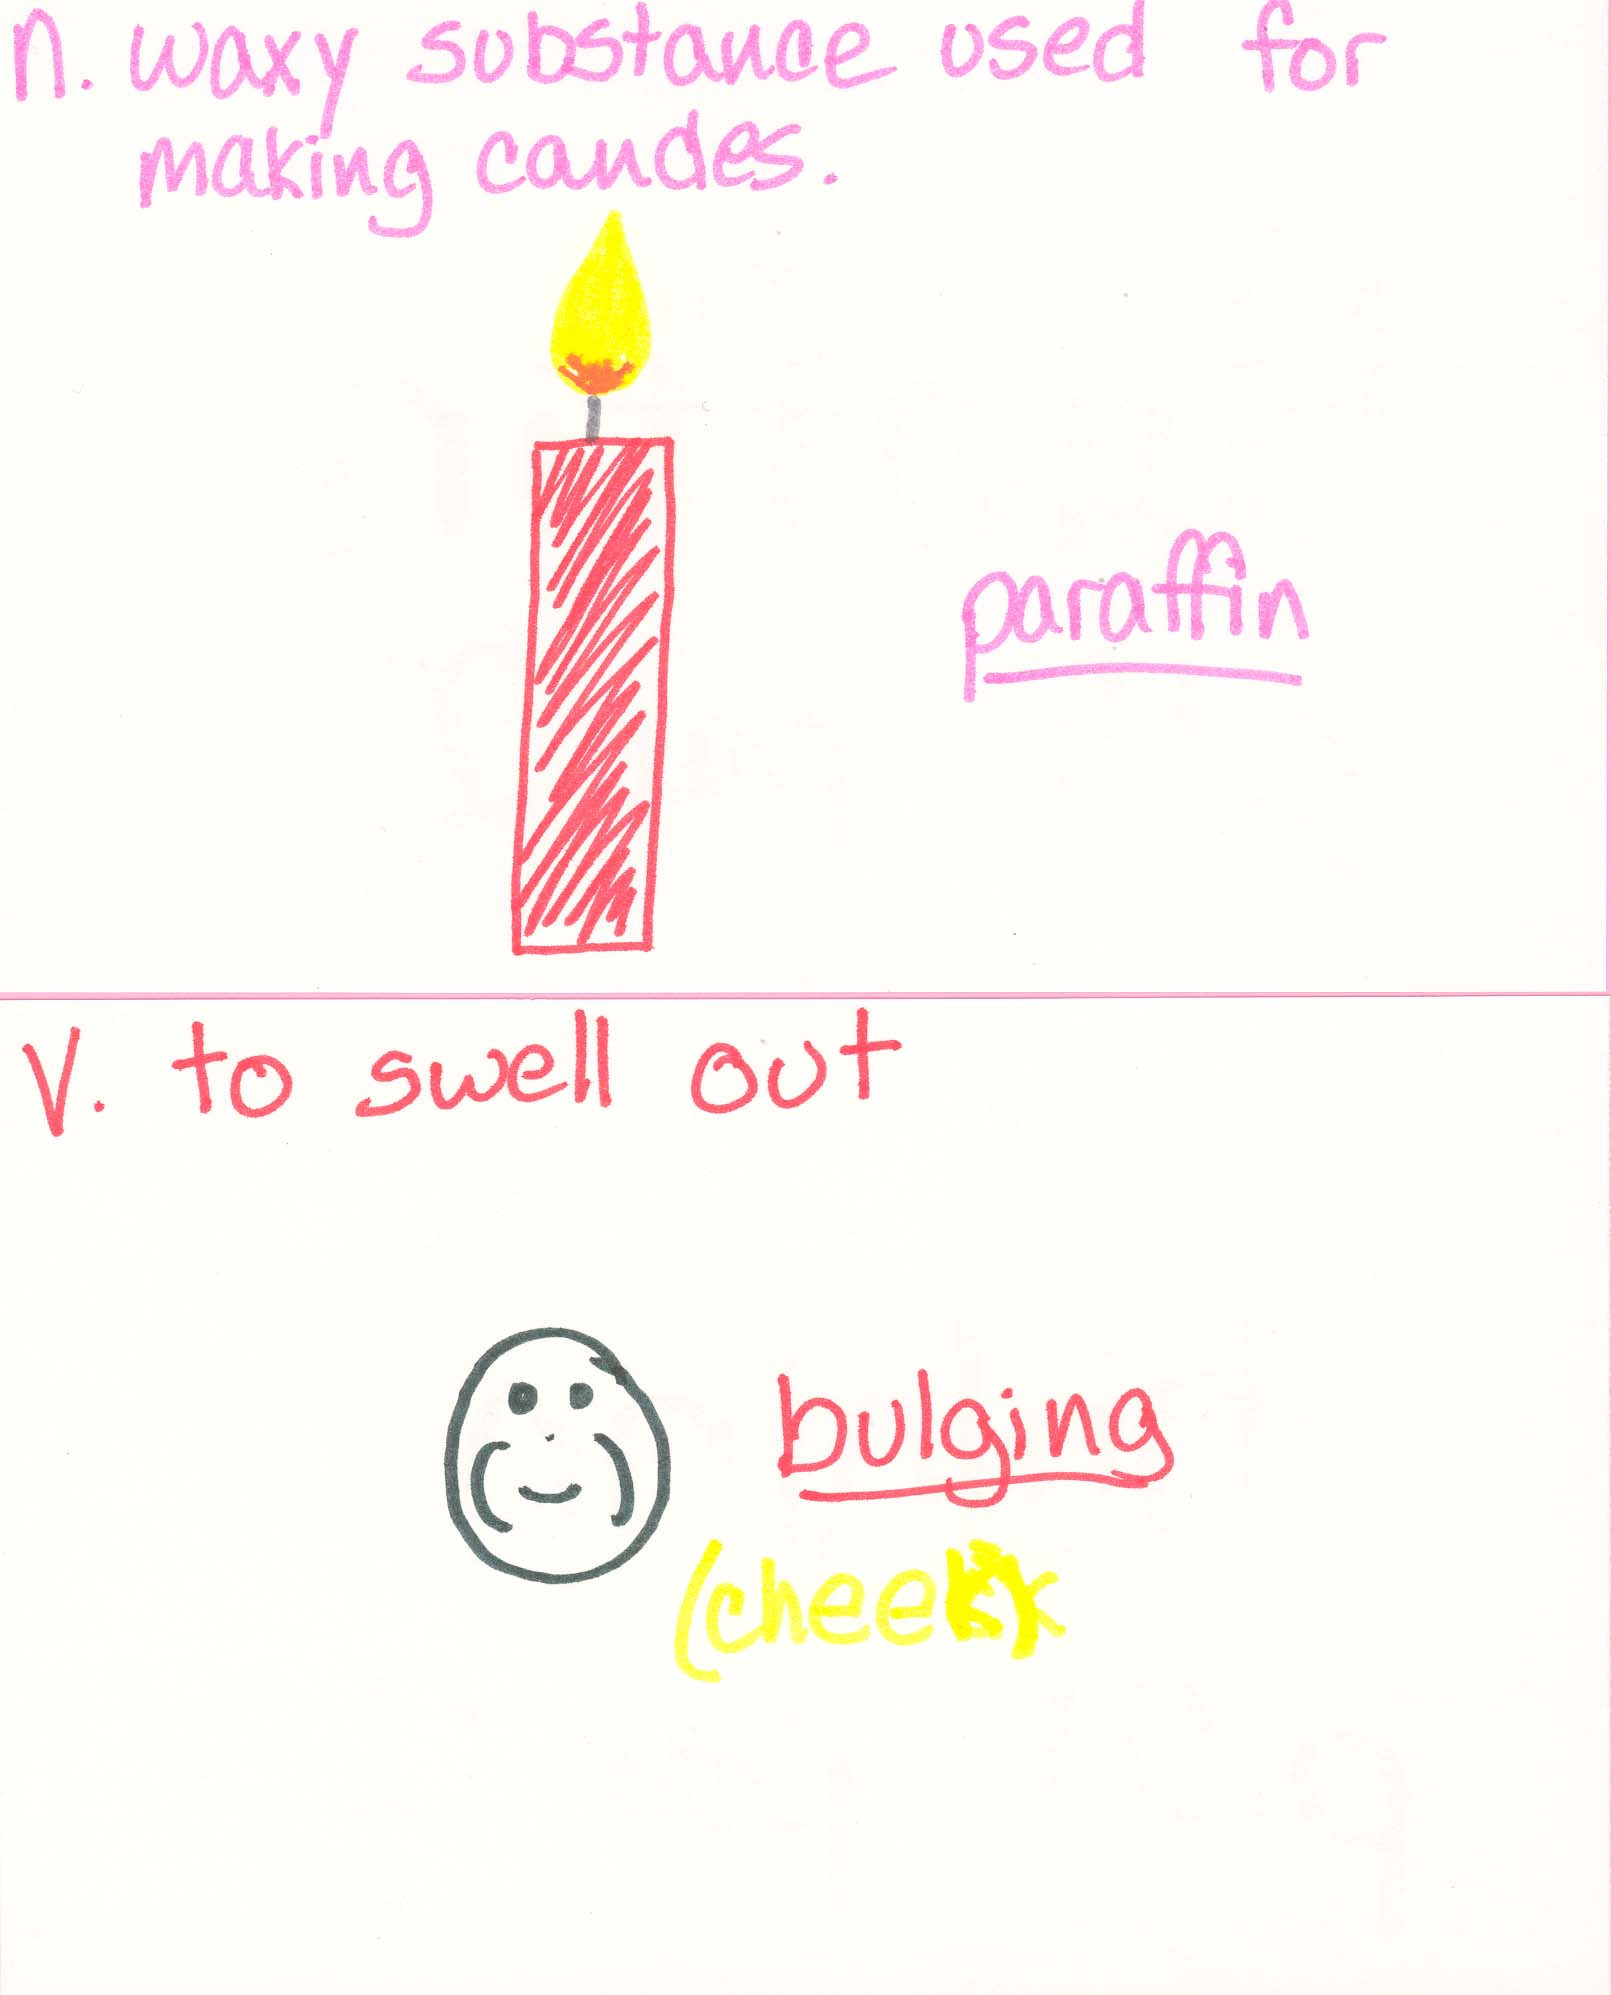 n. waxy substance used for
making candes.
paraffin
v. to swell out
bulging
(cheek